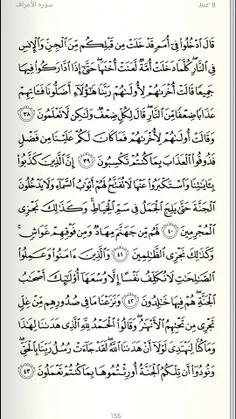 سورة الأعراف Juz' 8
قَالَ ٱدْخُلُوا۟ فِىٓ أُمَمٍ قَدْ خَلَتْ مِن قَبْلِكُم مِّنَ ٱلْجِنِّ وَٱلْإِنسِ
فِى ٱلنَّارِ كُلَّمَا دَخَلَتْ أُمَّةٌ لَّعَنَتْ أُخْتَهَا حَتَّىٰٓ إِذَا ٱدَّارَكُوا۟ فِيهَا
جَمِيعًا قَالَتْ أُخْرَىٰهُمْ لِأُولَىٰهُمْ رَبَّنَا هَـٰٓؤُلَآءِ أَضَلُّونَا فَـَٔاتِهِمْ
عَذَابًا ضِعْفًا مِّنَ ٱلنَّارِ قَالَ لِكُلٍّ ضِعْفٌ وَلَـٰكِن لَّا تَعْلَمُونَ ٣٨
وَقَالَتْ أُولَىٰهُمْ لِأُخْرَىٰهُمْ فَمَا كَانَ لَكُمْ عَلَيْنَا مِن فَضْلٍ
فَذُوقُوا۟ ٱلْعَذَابَ بِمَا كُنتُمْ تَكْسِبُونَ ٣٩ إِنَّ ٱلَّذِينَ كَذَّبُوا۟
بِـَٔايَـٰتِنَا وَٱسْتَكْبَرُوا۟ عَنْهَا لَا تُفَتَّحُ لَهُمْ أَبْوَٰبُ ٱلسَّمَآءِ وَلَا يَدْخُلُونَ
ٱلْجَنَّةَ حَتَّىٰ يَلِجَ ٱلْجَمَلُ فِى سَمِّ ٱلْخِيَاطِ وَكَذَٰلِكَ نَجْزِى
ٱلْمُجْرِمِينَ ٤٠ لَهُم مِّن جَهَنَّمَ مِهَادٌ وَمِن فَوْقِهِمْ غَوَاشٍ
وَكَذَٰلِكَ نَجْزِى ٱلظَّـٰلِمِينَ ٤١ وَٱلَّذِينَ ءَامَنُوا۟ وَعَمِلُوا۟
ٱلصَّـٰلِحَـٰتِ لَا نُكَلِّفُ نَفْسًا إِلَّا وُسْعَهَآ أُو۟لَـٰٓئِكَ أَصْحَـٰبُ
ٱلْجَنَّةِ هُمْ فِيهَا خَـٰلِدُونَ ٤٢ وَنَزَعْنَا مَا فِى صُدُورِهِم مِّنْ غِلٍّ
تَجْرِى مِن تَحْتِهِمُ ٱلْأَنْهَـٰرُ وَقَالُوا۟ ٱلْحَمْدُ لِلَّهِ ٱلَّذِى هَدَىٰنَا لِهَـٰذَا
وَمَا كُنَّا لِنَهْتَدِىَ لَوْلَآ أَنْ هَدَىٰنَا ٱللَّهُ لَقَدْ جَآءَتْ رُسُلُ رَبِّنَا بِٱلْحَقِّ
وَنُودُوٓا۟ أَن تِلْكُمُ ٱلْجَنَّةُ أُورِثْتُمُوهَا بِمَا كُنتُمْ تَعْمَلُونَ ٤٣
155